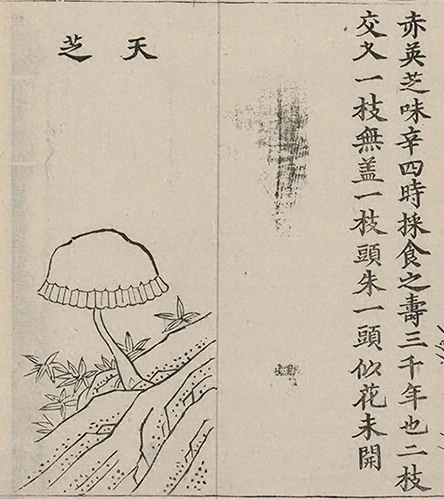 赤英芝味辛四時採食之壽三千年也二枝
交叉一枝無盖一枝頭朱一頭似花未開
天芝